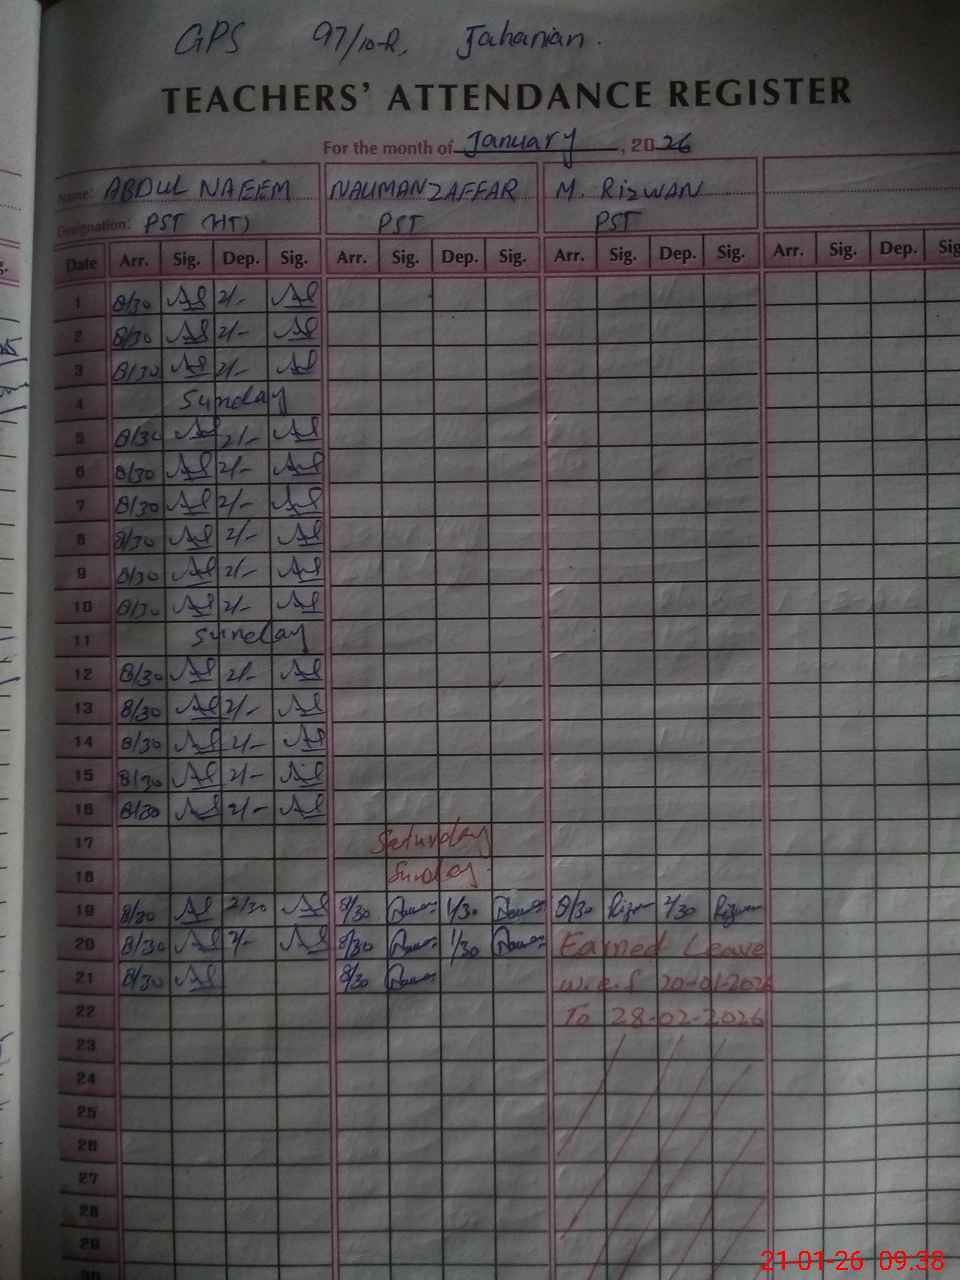 GPS 97/10-R, Jahanian.
TEACHERS' ATTENDANCE REGISTER
For the month of January, 2026
Name: ABDUL NAEEM NAUMAN ZAFFAR M. RIZWAN
Designation: PST (HT) PST PST
Date Arr. Sig. Dep. Sig. Arr. Sig. Dep. Sig. Arr. Sig. Dep. Sig. Arr. Sig. Dep. Sig
1 8/30 2/-
2 8/30 2/-
3 8/30 2/-
4 Sunday
5 8/30 2/-
6 8/30 2/-
7 8/30 2/-
8 8/30 2/-
9 8/30 2/-
10 8/30 2/-
11 Sunday
12 8/30 2/-
13 8/30 2/-
14 8/30 2/-
15 8/30 2/-
16 8/30 2/-
17 Saturday
18 Sunday
19 8/30 2/30 8/30 1/30 8/30
20 8/30 2/- 8/30 1/30 Earned Leave
21 8/30 8/30 w.e.f 20-01-2026
22 To 28-02-2026
23
24
25
26
27
28
29
30
21-01-26 09.38